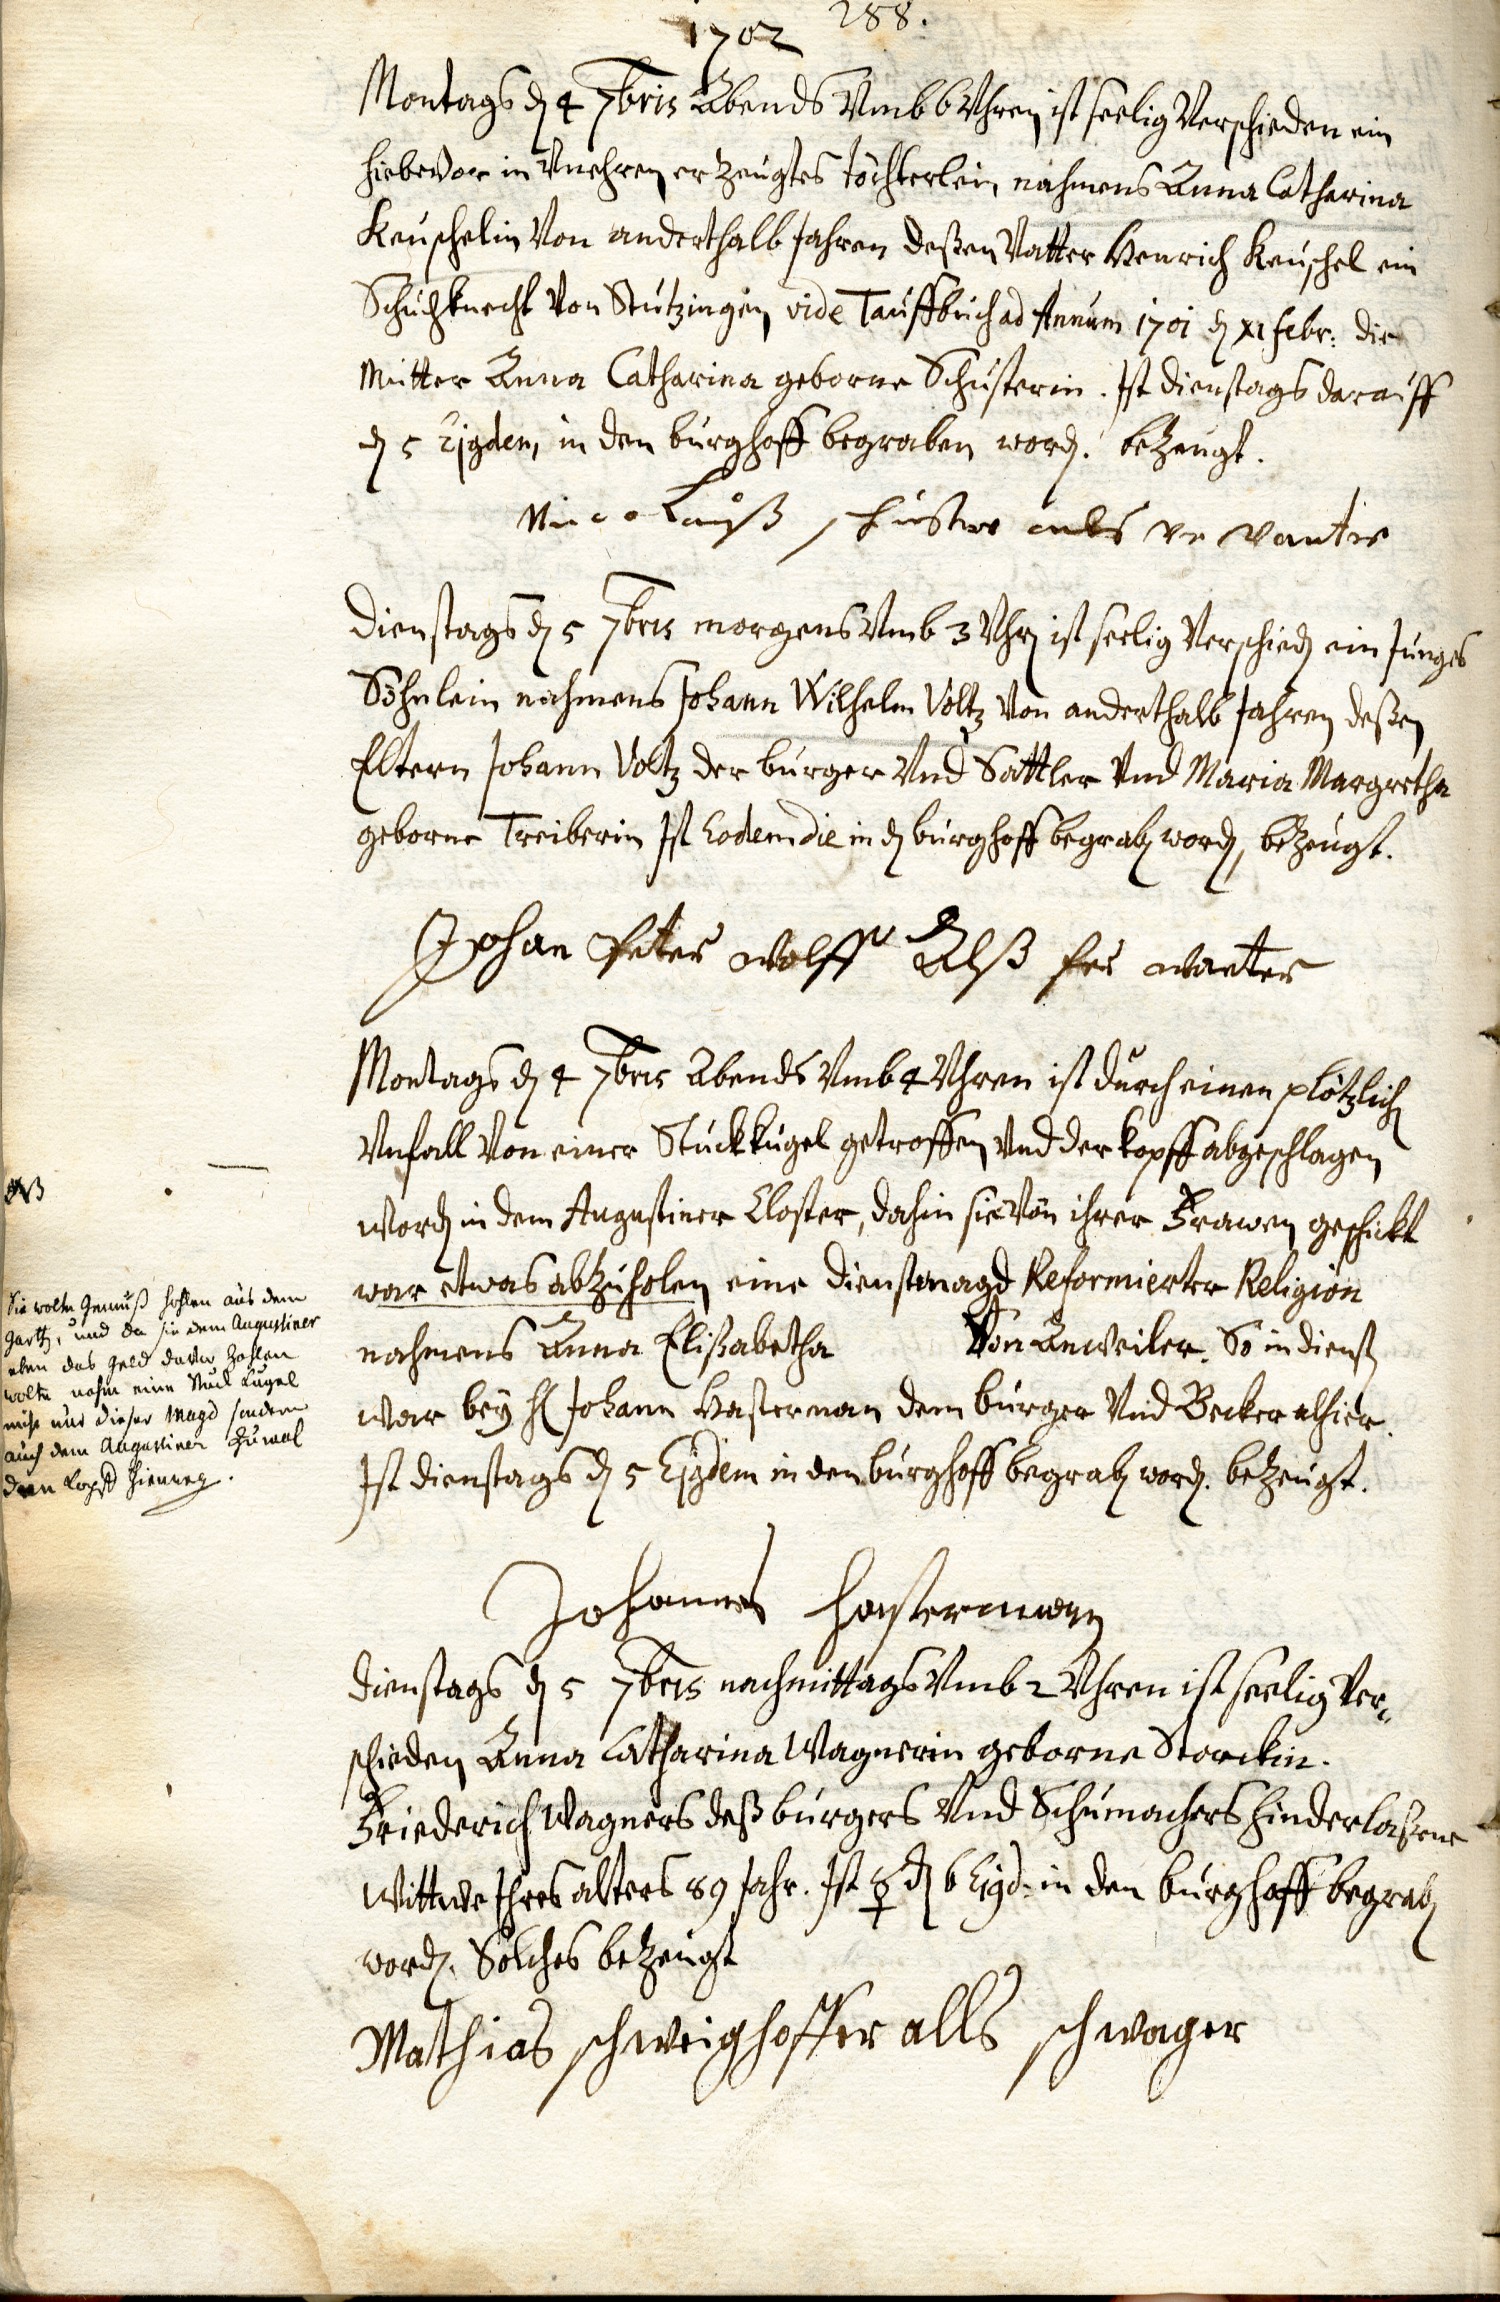 288.
1702
Montags dn 4 7bris Abends Vmb 6 Vhren ist seelig Verschieden ein
hiebevor in Vnehren erzeugtes töchterlein, nahmens Anna Catharina
Keuschelin Von anderthalb Jahren deßen Vatter Henrich Keuschel ein
Schuchknecht Von Stutzingen, vide Tauffbuch ad Annum 1701 dn XI febr: die
Mutter Anna Catharina geborne Schusterin. Ist dienstags darauff
dn 5 Ejgdem, in den burghoff begraben word. bezeugt.
Nicolauß als
dienstags dn 5 7bris morgens Vmb 3 Vhr ist seelig Verschied ein Junges
Söhnlein nahmens Johann Wilhelm Voltz Von anderthalb Jahren deßen
Eltern Johann Voltz der burger Vnd Sattler Vnd Maria Margretha
geborne Treiberin Ist Eodem die in dn burghoff begrab word, bezeugt.
Johan Peter Wolff Alß fer wanter
Montags dn 4 7bris Abends Vmb 4 Vhren ist durch einen plötzlich
Vnfall Von einer Stuckkugel getroffen, Vnd der kopff abgeschlagen
word in dem Augustiner Closter, dahin sie Von ihrer Frawen geschickt
war etwas abzuholen, eine dienstmagd Reformierter Religion
nahmens Anna Elisabetha Von Anweiler. So in dienst
war bey H Johann Hasterman dem burger Vnd Becker alhier.
Ist dienstags dn 5 Ejgdem in den burghoff begrab word. bezeugt.
NB
Sie wolte Gemuß hohlen aus dem
Gartt, und da sie dem Augustiner
eben das Geld davor zahlen
wolte nahm eine Stuck Kugel
nicht nur dieser Magd sondern
auch dem Augustiner zumal
den Kopff hinweg.
Johannes Hastermann
dienstags dn 5 7bris nachmittags Vmb 2 Vhren ist seelig Ver-
schieden Anna Catharina Wagnerin geborne Storckin.
Friederich Wagners deß burgers Vnd Schumachers hinderlaßene
Wittwe Ihres alters 89 Jahr. Ist ☿ dn 6 Ejgd: in den burghoff begrab
word. Solches bezeugt
Mathias schweighoffer alls schwager